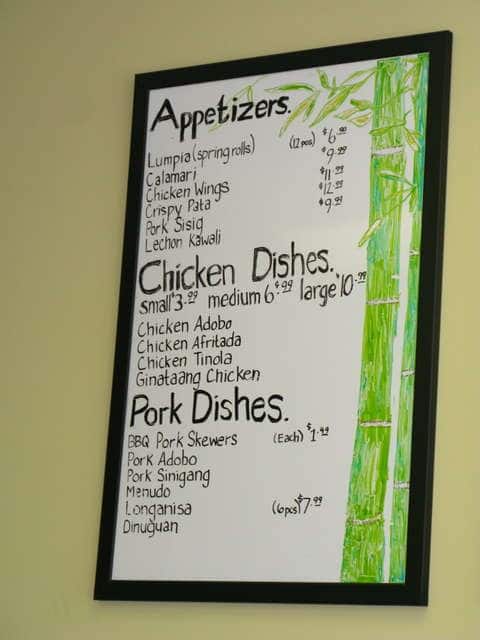 Appetizers.
Lumpia (spring rolls) (12 pcs) $6.90
Calamari $9.99
Chicken Wings $11.99
Crispy Pata $12.99
Pork Sisig $9.99
Lechon Kawali
Chicken Dishes.
small $3.99 medium 6$.99 large $10.99
Chicken Adobo
Chicken Afritada
Chicken Tinola
Ginataang Chicken
Pork Dishes.
BBQ Pork Skewers (Each) $1.99
Pork Adobo
Pork Sinigang
Menudo
Longanisa (6pcs) $7.99
Dinuguan